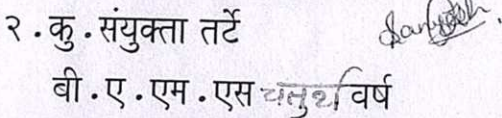 २.कु.संयुक्ता तर्टे
बी.ए.एम.एस चतुर्थ वर्ष